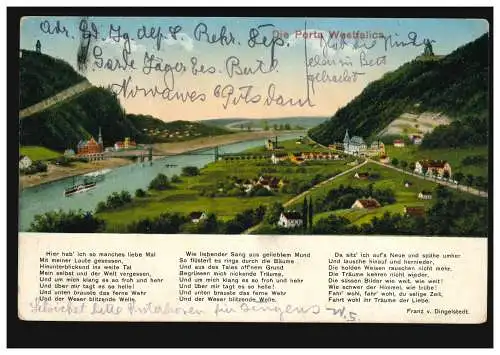 Die Porta Westfalica
Adr. Ed. Jg. dep. L. Rekr. Dep.
Garde Jäger Ers. Batl.
Nowawes b/Potsdam
Hab die Kinder
schon zu Bett
gebracht
Hier hab' ich so manches liebe Mal
Mit meiner Laute gesessen,
Hinunterblickend ins weite Tal
Mein selbst und der Welt vergessen,
Und um mich klang es so froh und hehr
Und über mir tagt es so helle!
Und unten brauste das ferne Wehr
Und der Weser blitzende Welle.
Wie liebender Sang aus geliebtem Mund
So flüstert es rings durch die Bäume
Und aus des Tales off'nem Grund
Begrüssen mich nickende Träume,
Und um mich klang es so froh und hehr
Und über mir tagt es so helle!
Und unten brauste das ferne Wehr
Und der Weser blitzende Welle.
Da sitz' ich auf's Neue und spähe umher
Und lausche hinauf und hernieder,
Die holden Weisen rauschen nicht mehr,
Die Träume kehren nicht wieder.
Die süssen Bilder wie weit, wie weit!
Wie schwer der Himmel, wie trübe!
Fahr' wohl, fahr' wohl, du selige Zeit,
Fahrt wohl ihr Träume der Liebe.
Franz v. Dingelstedt.
Schicket bitte Unterhosen für